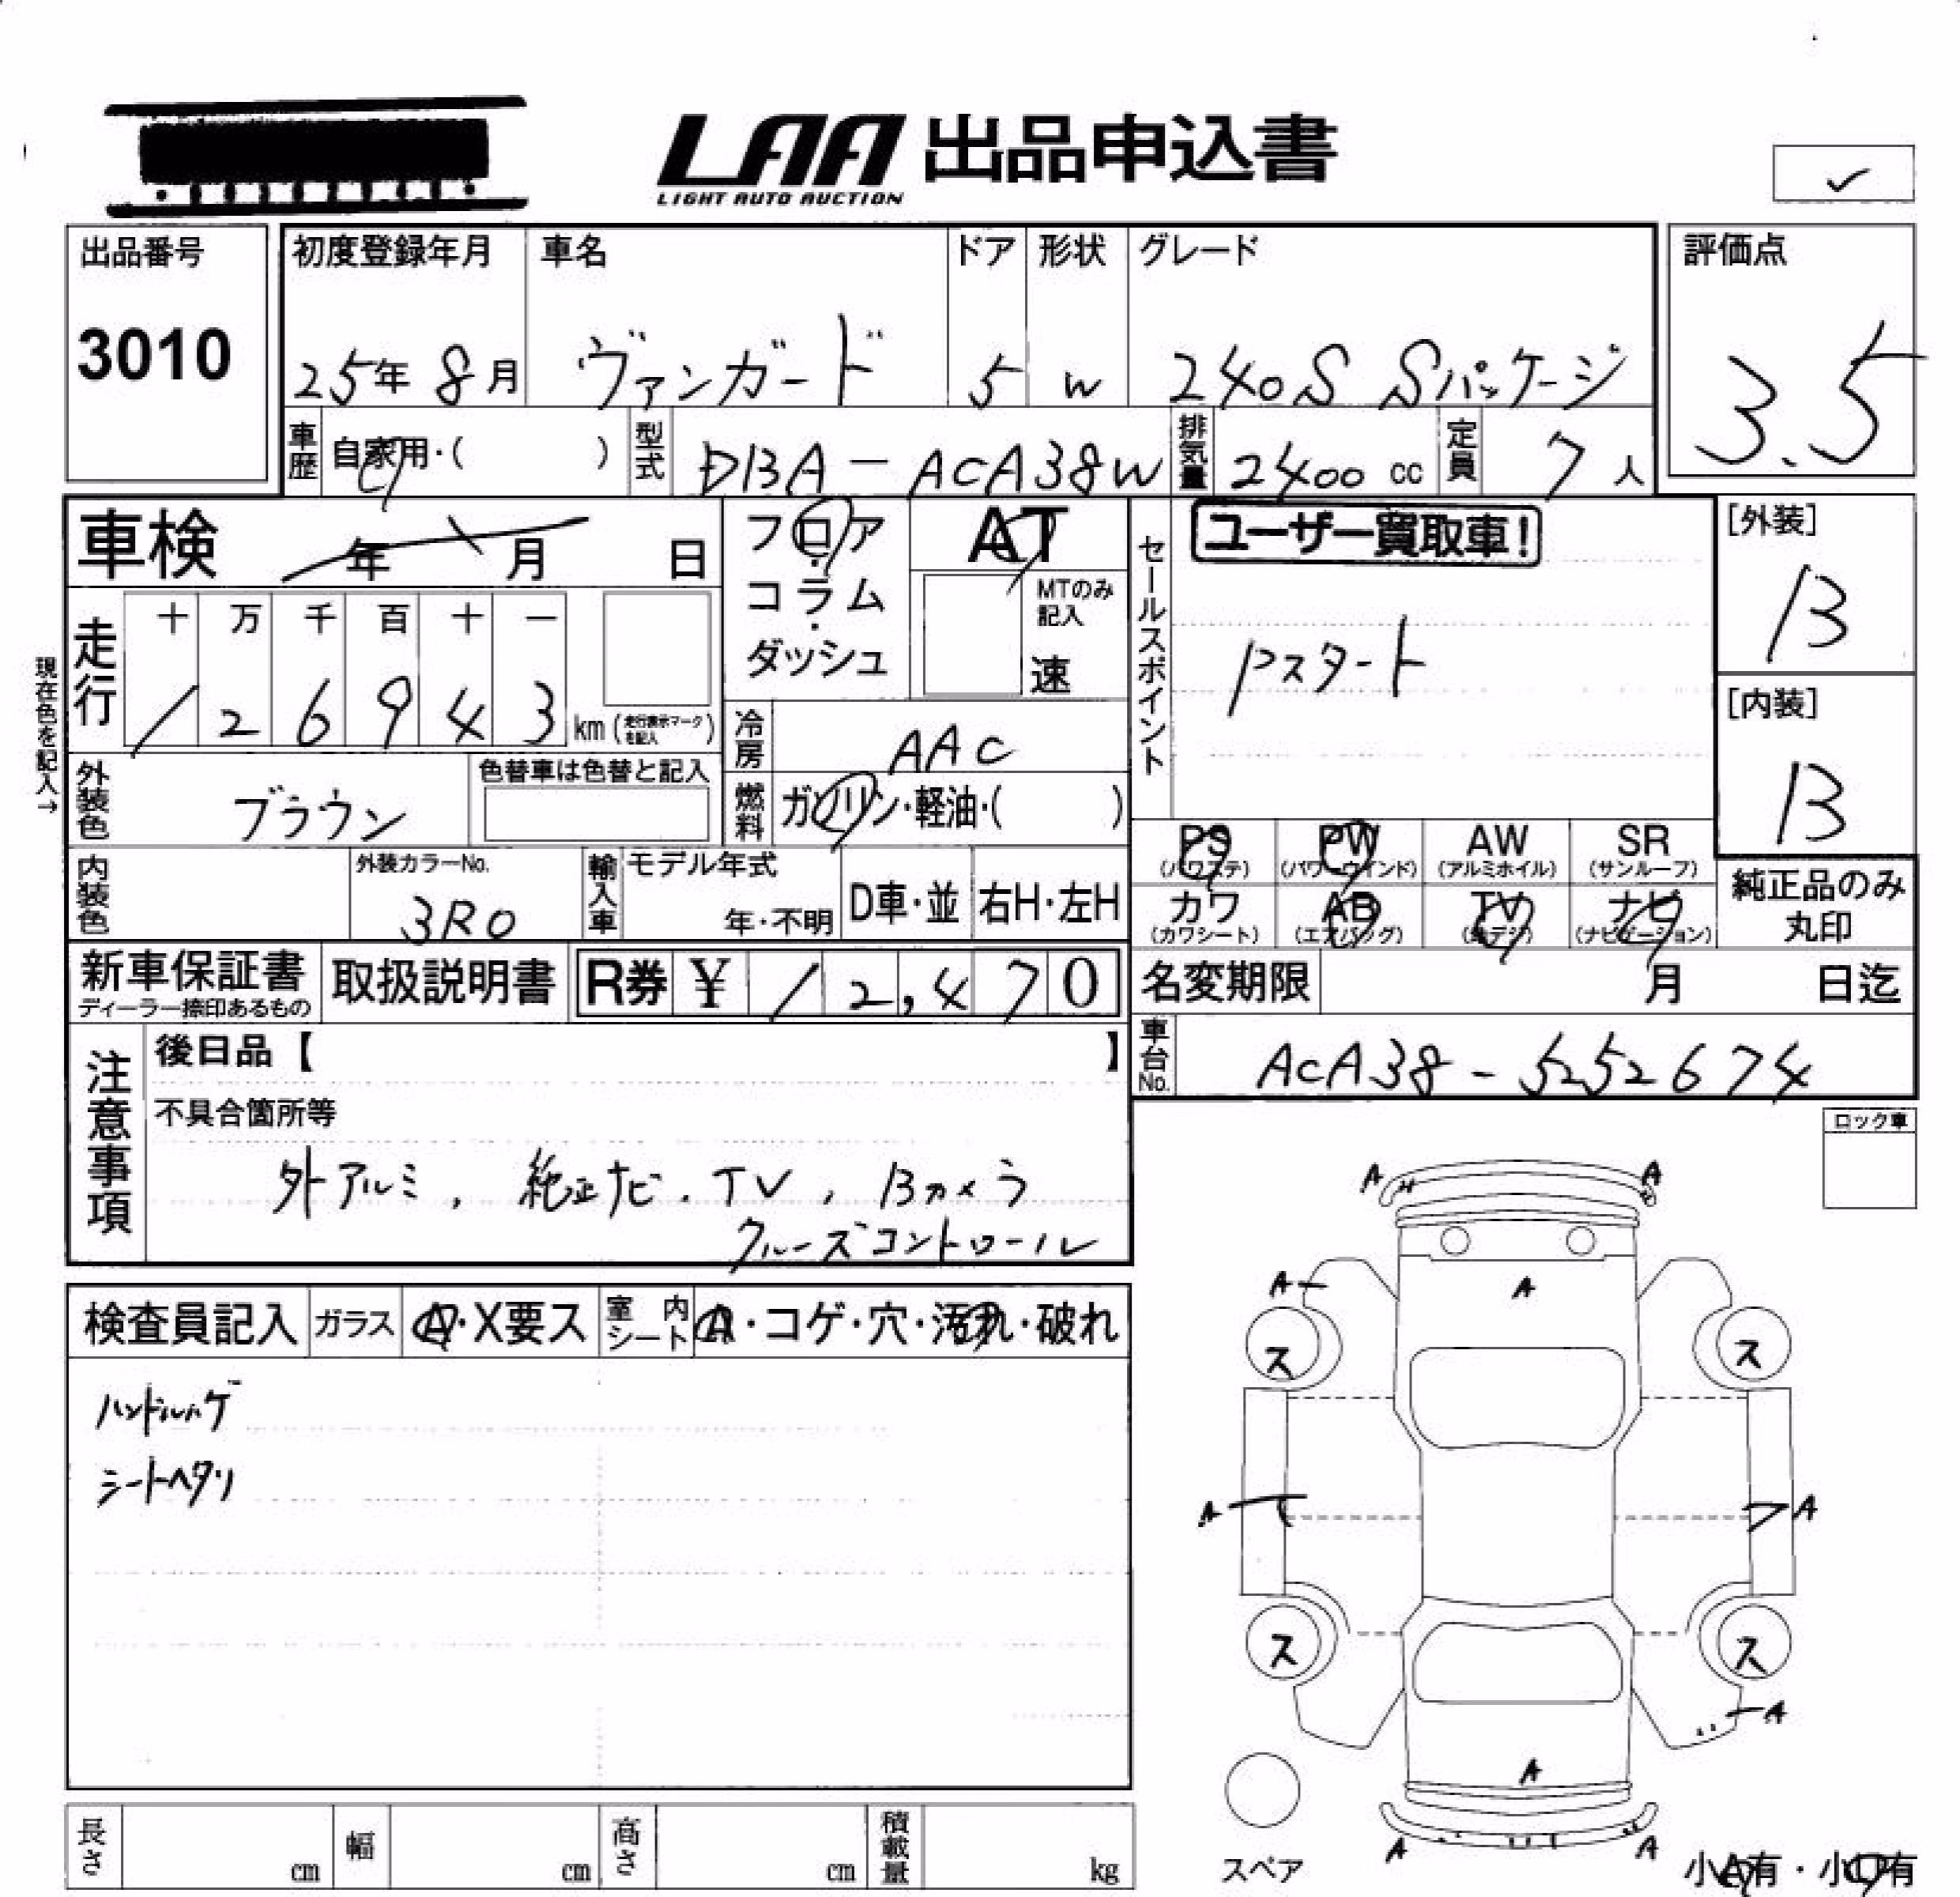 LAA 出品申込書
LIGHT AUTO AUCTION
✓
出品番号
3010
初度登録年月
25年 8月
車名
ヴァンガード
ドア
5
形状
W
グレード
240S Sパッケージ
評価点
3.5
車歴
自家用・( )
型式
DBA-ACA38W
排気量
2400 cc
定員
7人
車検
年 月 日
フロア・コラム・ダッシュ
AT
MTのみ記入
速
セールスポイント
ユーザー買取車!
Pスタート
[外装]
B
[内装]
B
現在色を記入→
走行
十 万 千 百 十 一
1 2 6 9 4 3 km (走行表示マークを記入)
冷房
AAC
外装色
ブラウン
色替車は色替と記入
燃料
ガソリン・軽油・( )
PS (パワステ)
PW (パワーウインド)
AW (アルミホイル)
SR (サンルーフ)
カワ (カワシート)
AB (エアバッグ)
TV (地デジ)
ナビ (ナビゲーション)
純正品のみ丸印
内装色
外装カラーNo.
3R0
輸入車
モデル年式
年・不明
D車・並
右H・左H
新車保証書
ディーラー捺印あるもの
取扱説明書
R券 ¥ 12,470
名変期限
月 日迄
車台No.
ACA38-5252674
注意事項
後日品【 】
不具合箇所等
外アルミ, 純正ナビ.TV, Bカメラ
クルーズコントロール
ロック車
検査員記入
ガラス
A・X要ス
室内シート
A・コゲ・穴・汚れ・破れ
ハンドルハゲ
シートヘタリ
A A
A A
ス ス
A A
ス ス
A
A
A A
スペア
小A有・小U有
長さ
cm
幅
cm
高さ
cm
積載量
kg